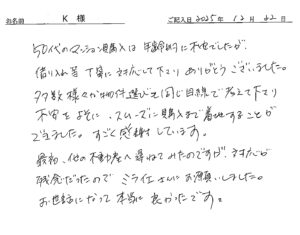 お名前 K 様 ご記入日 2025年 12月 22日
50代のマンション購入は年齢的に不安でしたが、
借り入れ等 丁寧に対応して下さり ありがとうございました。
多数 様々な物件選びも同じ目線で考えて下さり
不安をよそに、スムーズに購入まで着地することが
できました。すごく感謝しています。
最初、他の不動産へ尋ねてみたのですが、対応が
残念だったので ミライエさんにお願いしました。
お世話になって本当に良かったです。